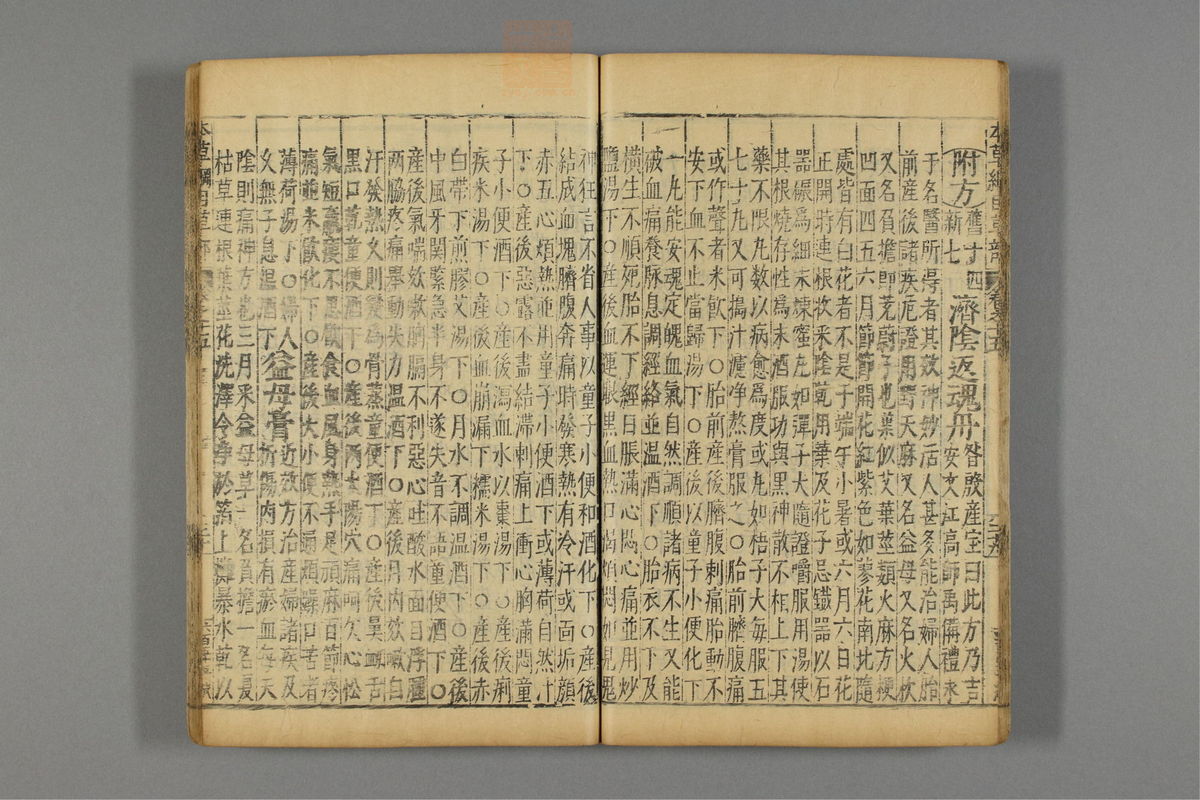 附方舊一新七 濟陰返魂丹昝殷産宝曰此方乃吉
于名醫所得者其效神妙活人甚多能治婦人胎
前産後諸疾危證用野天麻又名益母又名火枚
又名負擔即茺蔚子也葉似艾葉莖類火麻方梗
凹面四五六月節節開花紅紫色如蓼花南北隨
處皆有白花者不是于端午小暑或六月六日花
正開時連根收采陰乾用葉及花子忌鐵器以石
器碾爲細末煉蜜丸如彈子大隨證嚼服用湯使
其根燒存性爲末酒服功與黑神散不相上下其
藥不限丸數以病愈爲度或丸如梧子大毎服五
七十丸又可搗汁濾净熬膏服之○胎前臍腹痛
或作聲者米飲下○胎前産後臍腹刺痛胎動不
安下血不止當歸湯下○産後以童子小便化下
一丸能安魂定魄血氣自然調順諸病不生又能
破血痛養脉息調經絡並温酒下○胎衣不下及
橫生不順死胎不下經日脹滿心悶心痛並用炒
鹽湯下○産後血運眼黑血熱口渴煩悶如見鬼
神狂言不省人事以童子小便和酒化下○産後
結成血塊臍腹奔痛時發寒熱有冷汗或面垢顔
赤五心煩熱並用童子小便酒下或薄荷自然汁
下○産後惡露不盡結滯刺痛上衝心胸滿悶童
子小便酒下○産後瀉血水以棗湯下○産後痢
疾米湯下○産後血崩漏下糯米湯下○産後赤
白帶下煎膠艾湯下○月水不調温酒下○産後
中風牙關緊急半身不遂失音不語童便酒下○
産後氣喘欬嗽胸膈不利惡心吐酸水面目浮腫
兩脇疼痛舉動失力温酒下○産後月内欬嗽自
汗發熱久則變爲骨蒸童便酒下○産後兩太陽穴痛呵欠心忪
氣短羸瘦不思飲食血風身熱手足頑麻百節疼
痛並米飲化下○産後大小便不通煩躁口苦者
薄荷湯下○婦人久無子息温酒下 益母膏近效方治産婦諸疾及
折傷内損有瘀血每天
陰則痛神方也三月采益母草一名負擔一名夏
枯草連根葉莖花洗擇令净於箔上攤暴水乾以